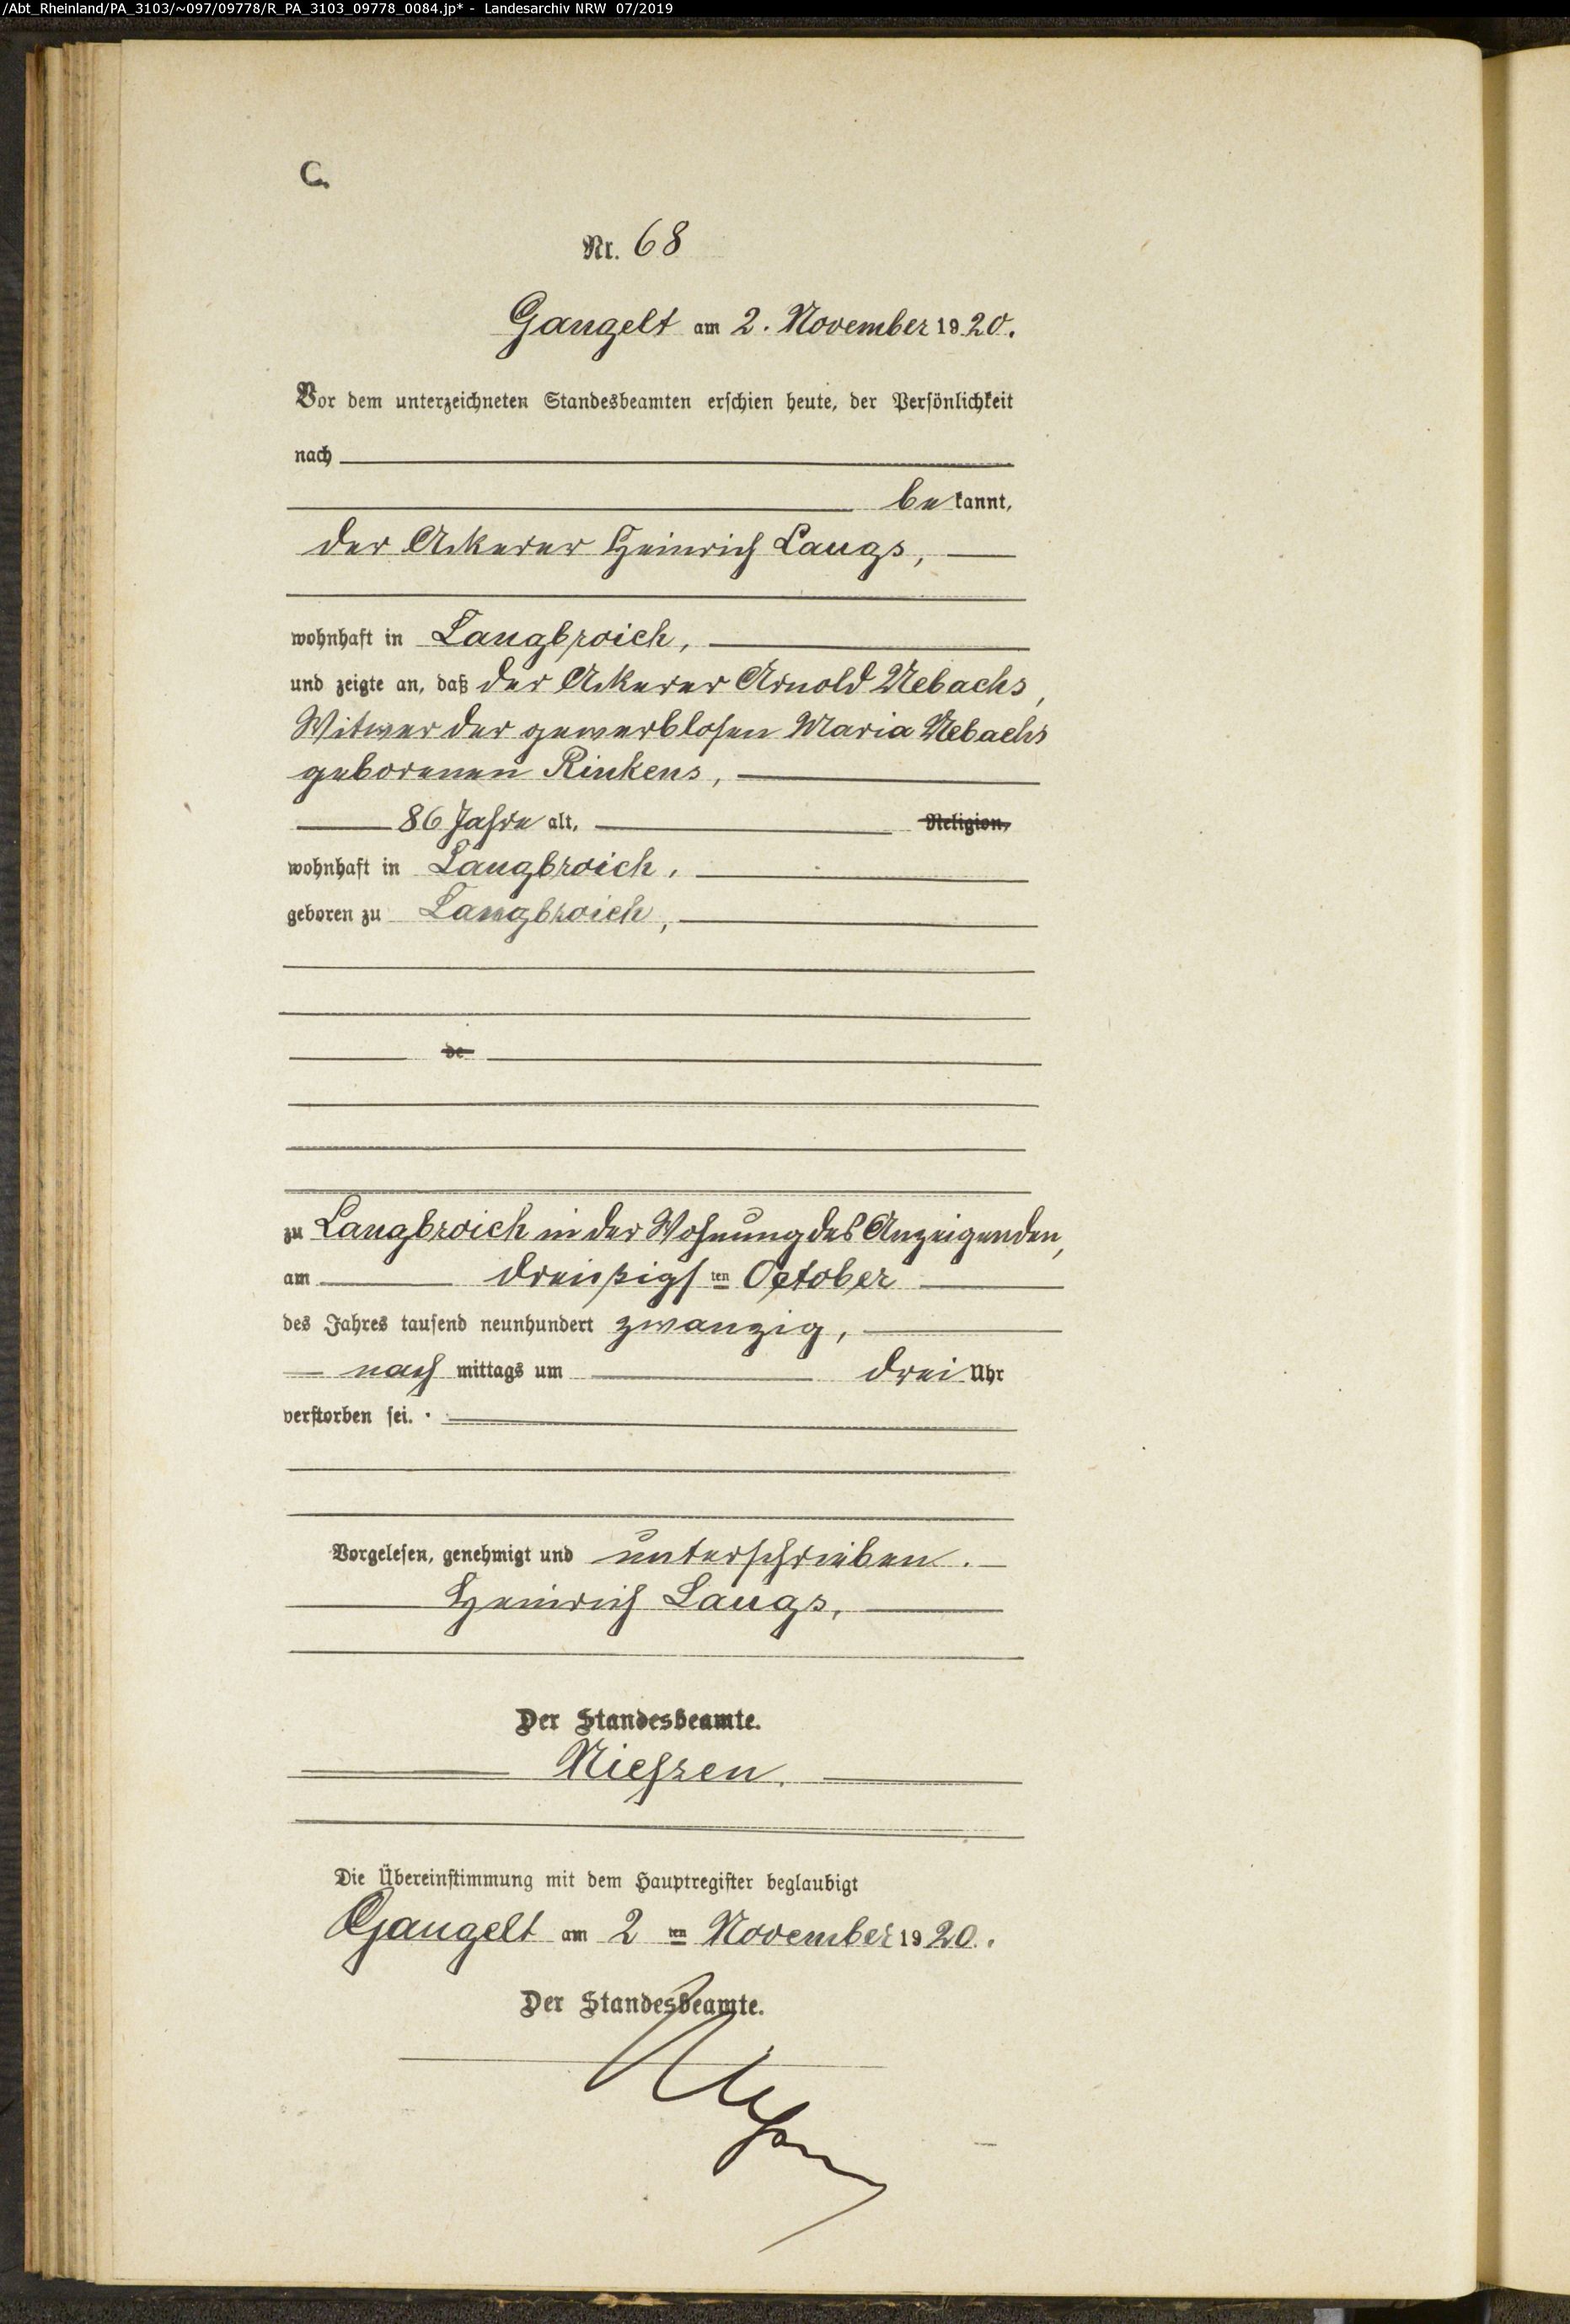 /Abt_Rheinland/PA_3103/~097/09778/R_PA_3103_09778_0084.jp* - Landesarchiv NRW 07/2019
C.
Nr. 68
Gangelt am 2. November 1920.
Vor dem unterzeichneten Standesbeamten erschien heute, der Persönlichkeit
nach
bekannt,
der Ackerer Heinrich Laugs,
wohnhaft in Langbroich,
und zeigte an, daß der Ackerer Arnold Uebachs,
Witwer der gewerblosen Maria Uebachs
geborenen Rinkens,
86 Jahre alt, Religion,
wohnhaft in Langbroich,
geboren zu Langbroich,
de
zu Langbroich in der Wohnung des Anzeigenden,
am dreißigsten October
des Jahres tausend neunhundert zwanzig,
nachmittags um drei Uhr
verstorben sei.
Vorgelesen, genehmigt und unterschrieben.
Heinrich Laugs,
Der Standesbeamte.
Niessen.
Die Übereinstimmung mit dem Hauptregister beglaubigt
Gangelt am 2ten November 1920.
Der Standesbeamte.